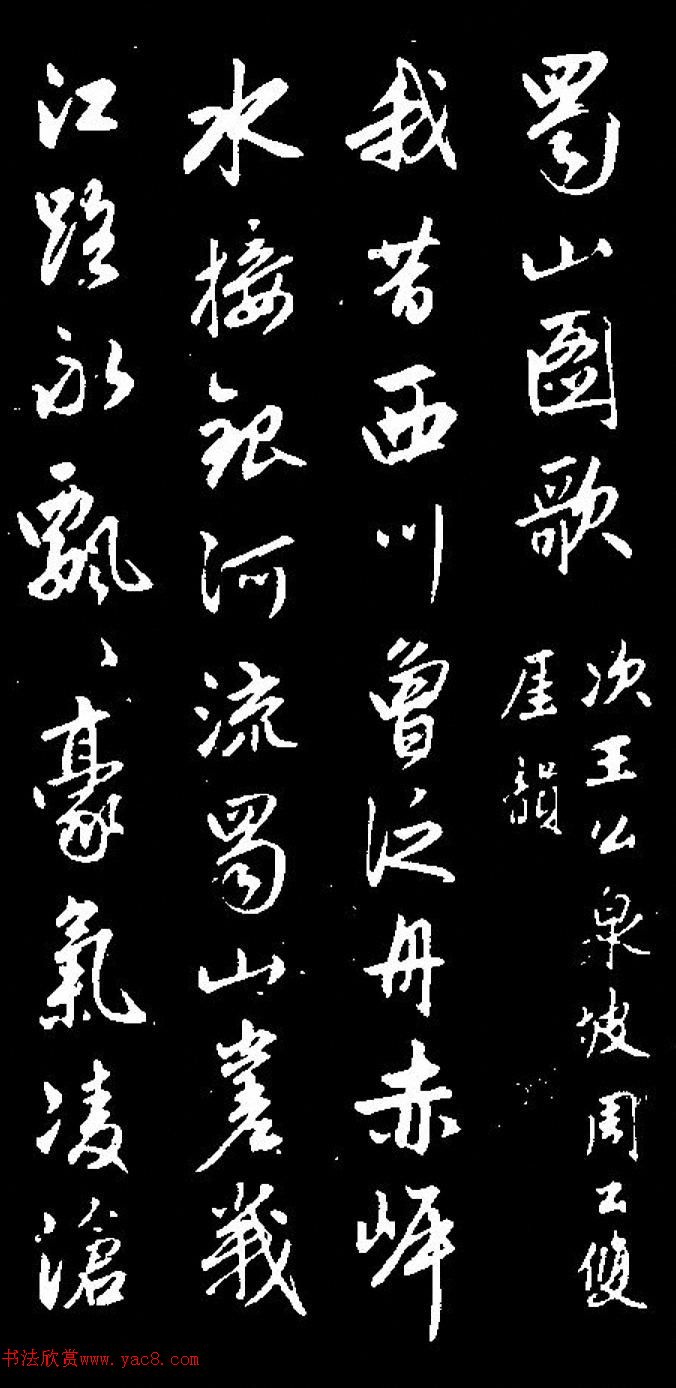 蜀山圖歌
次王公泉坡周公雙
厓韻
我昔西川曾泛舟赤岬
水接銀河流蜀山嵳峩
江路永飄〻豪氣凌滄
书法欣赏www.yac8.com